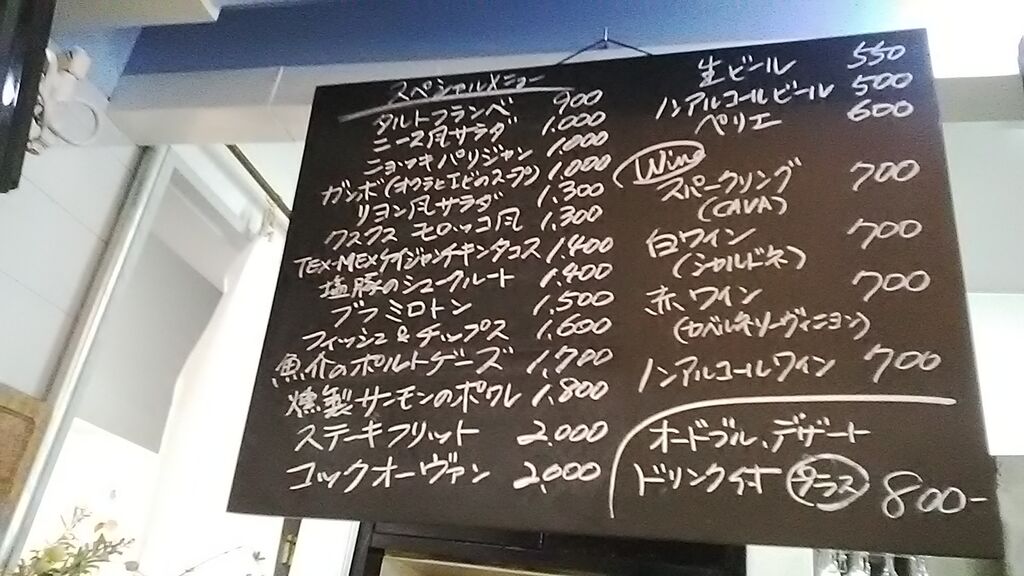 スペシャルメニュー
タルトフランベ 900
ニース風サラダ 1,000
ニョッキパリジャン 1,000
ガンボ(オクラとエビのスープ) 1,000
リヨン風サラダ 1,300
クスクス モロッコ風 1,300
TEX-MEXケイジャンチキンタコス 1,400
塩豚のシュークルート 1,400
ブラミロトン 1,500
フィッシュ&チップス 1,600
魚介のポルトゲーズ 1,700
燻製サーモンのポワレ 1,800
ステーキフリット 2,000
コックオーヴァン 2,000
生ビール 550
ノンアルコールビール 500
ペリエ 600
Wine
スパークリング 700
(CAVA)
白ワイン 700
(シャルドネ)
赤ワイン 700
(カベルネソーヴィニヨン)
ノンアルコールワイン 700
オードブル、デザート
ドリンク付 プラス 800-